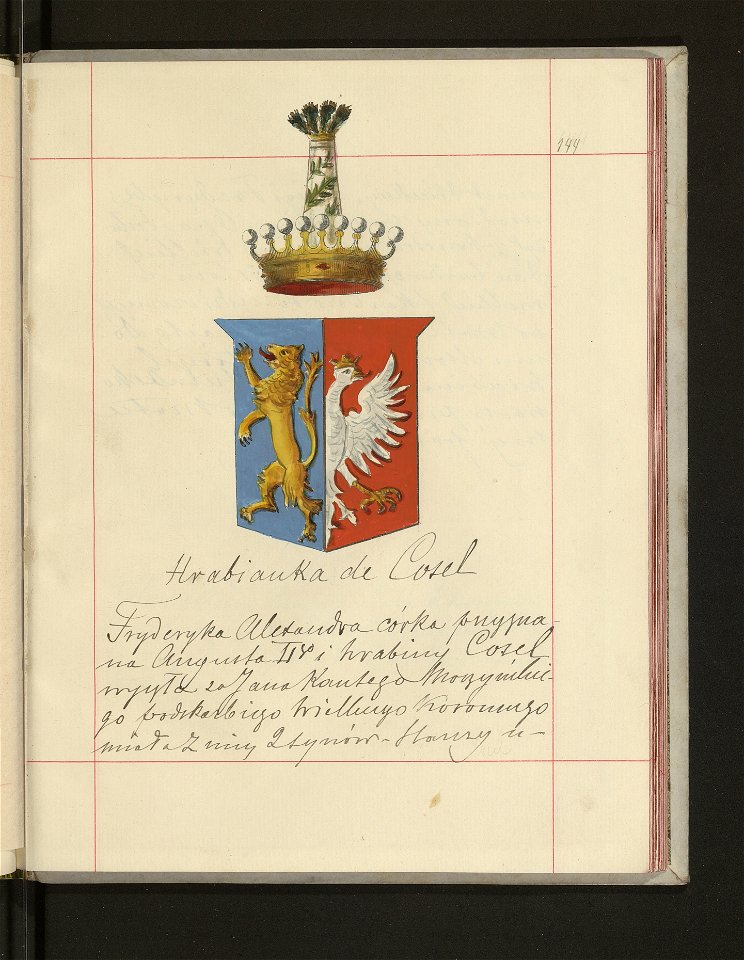 144
Hrabianka de Cosel
Fryderyka Alexandra córka przyzna-
na Augusta IIgo i hrabiny Cosel
wyszła za Jana Kantego Moszyńskie-
go podskarbiego wielkiego koronnego
miała z nim 2 synów - starszy u-